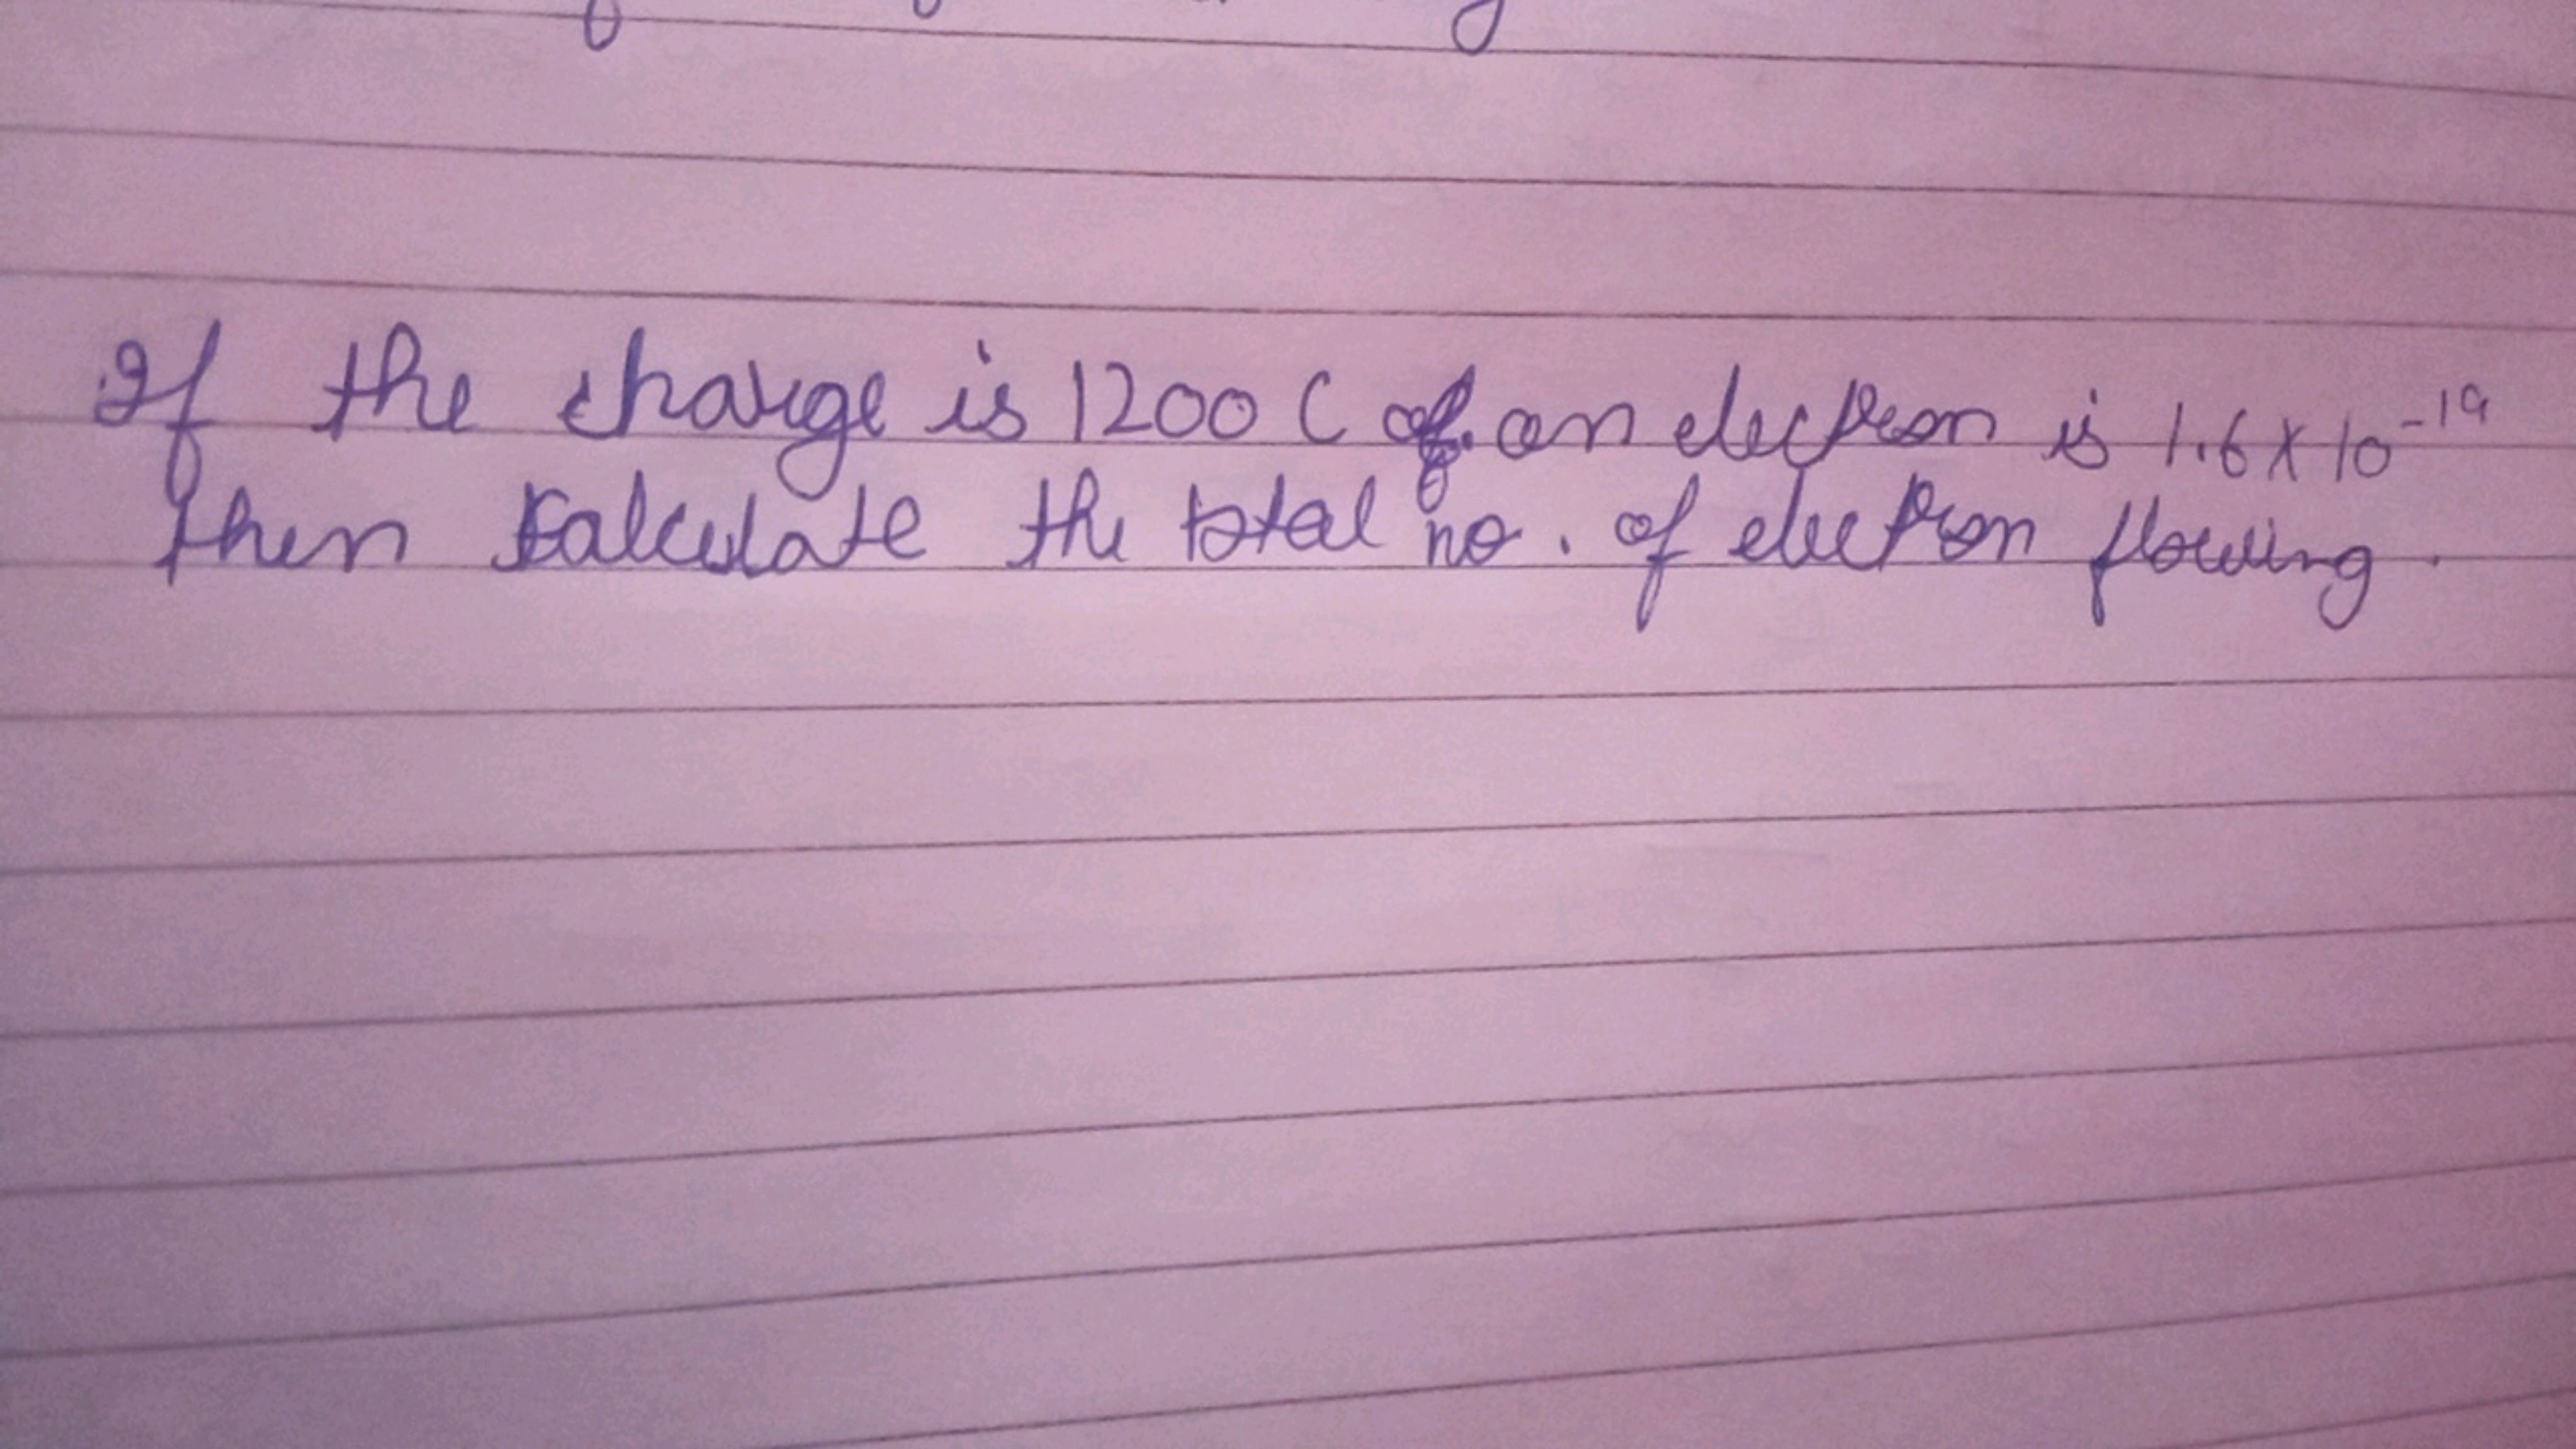 If the charge is 1200 C of an electron is 1.6 x 10⁻¹⁹
then calculate the total no. of electron flowing.